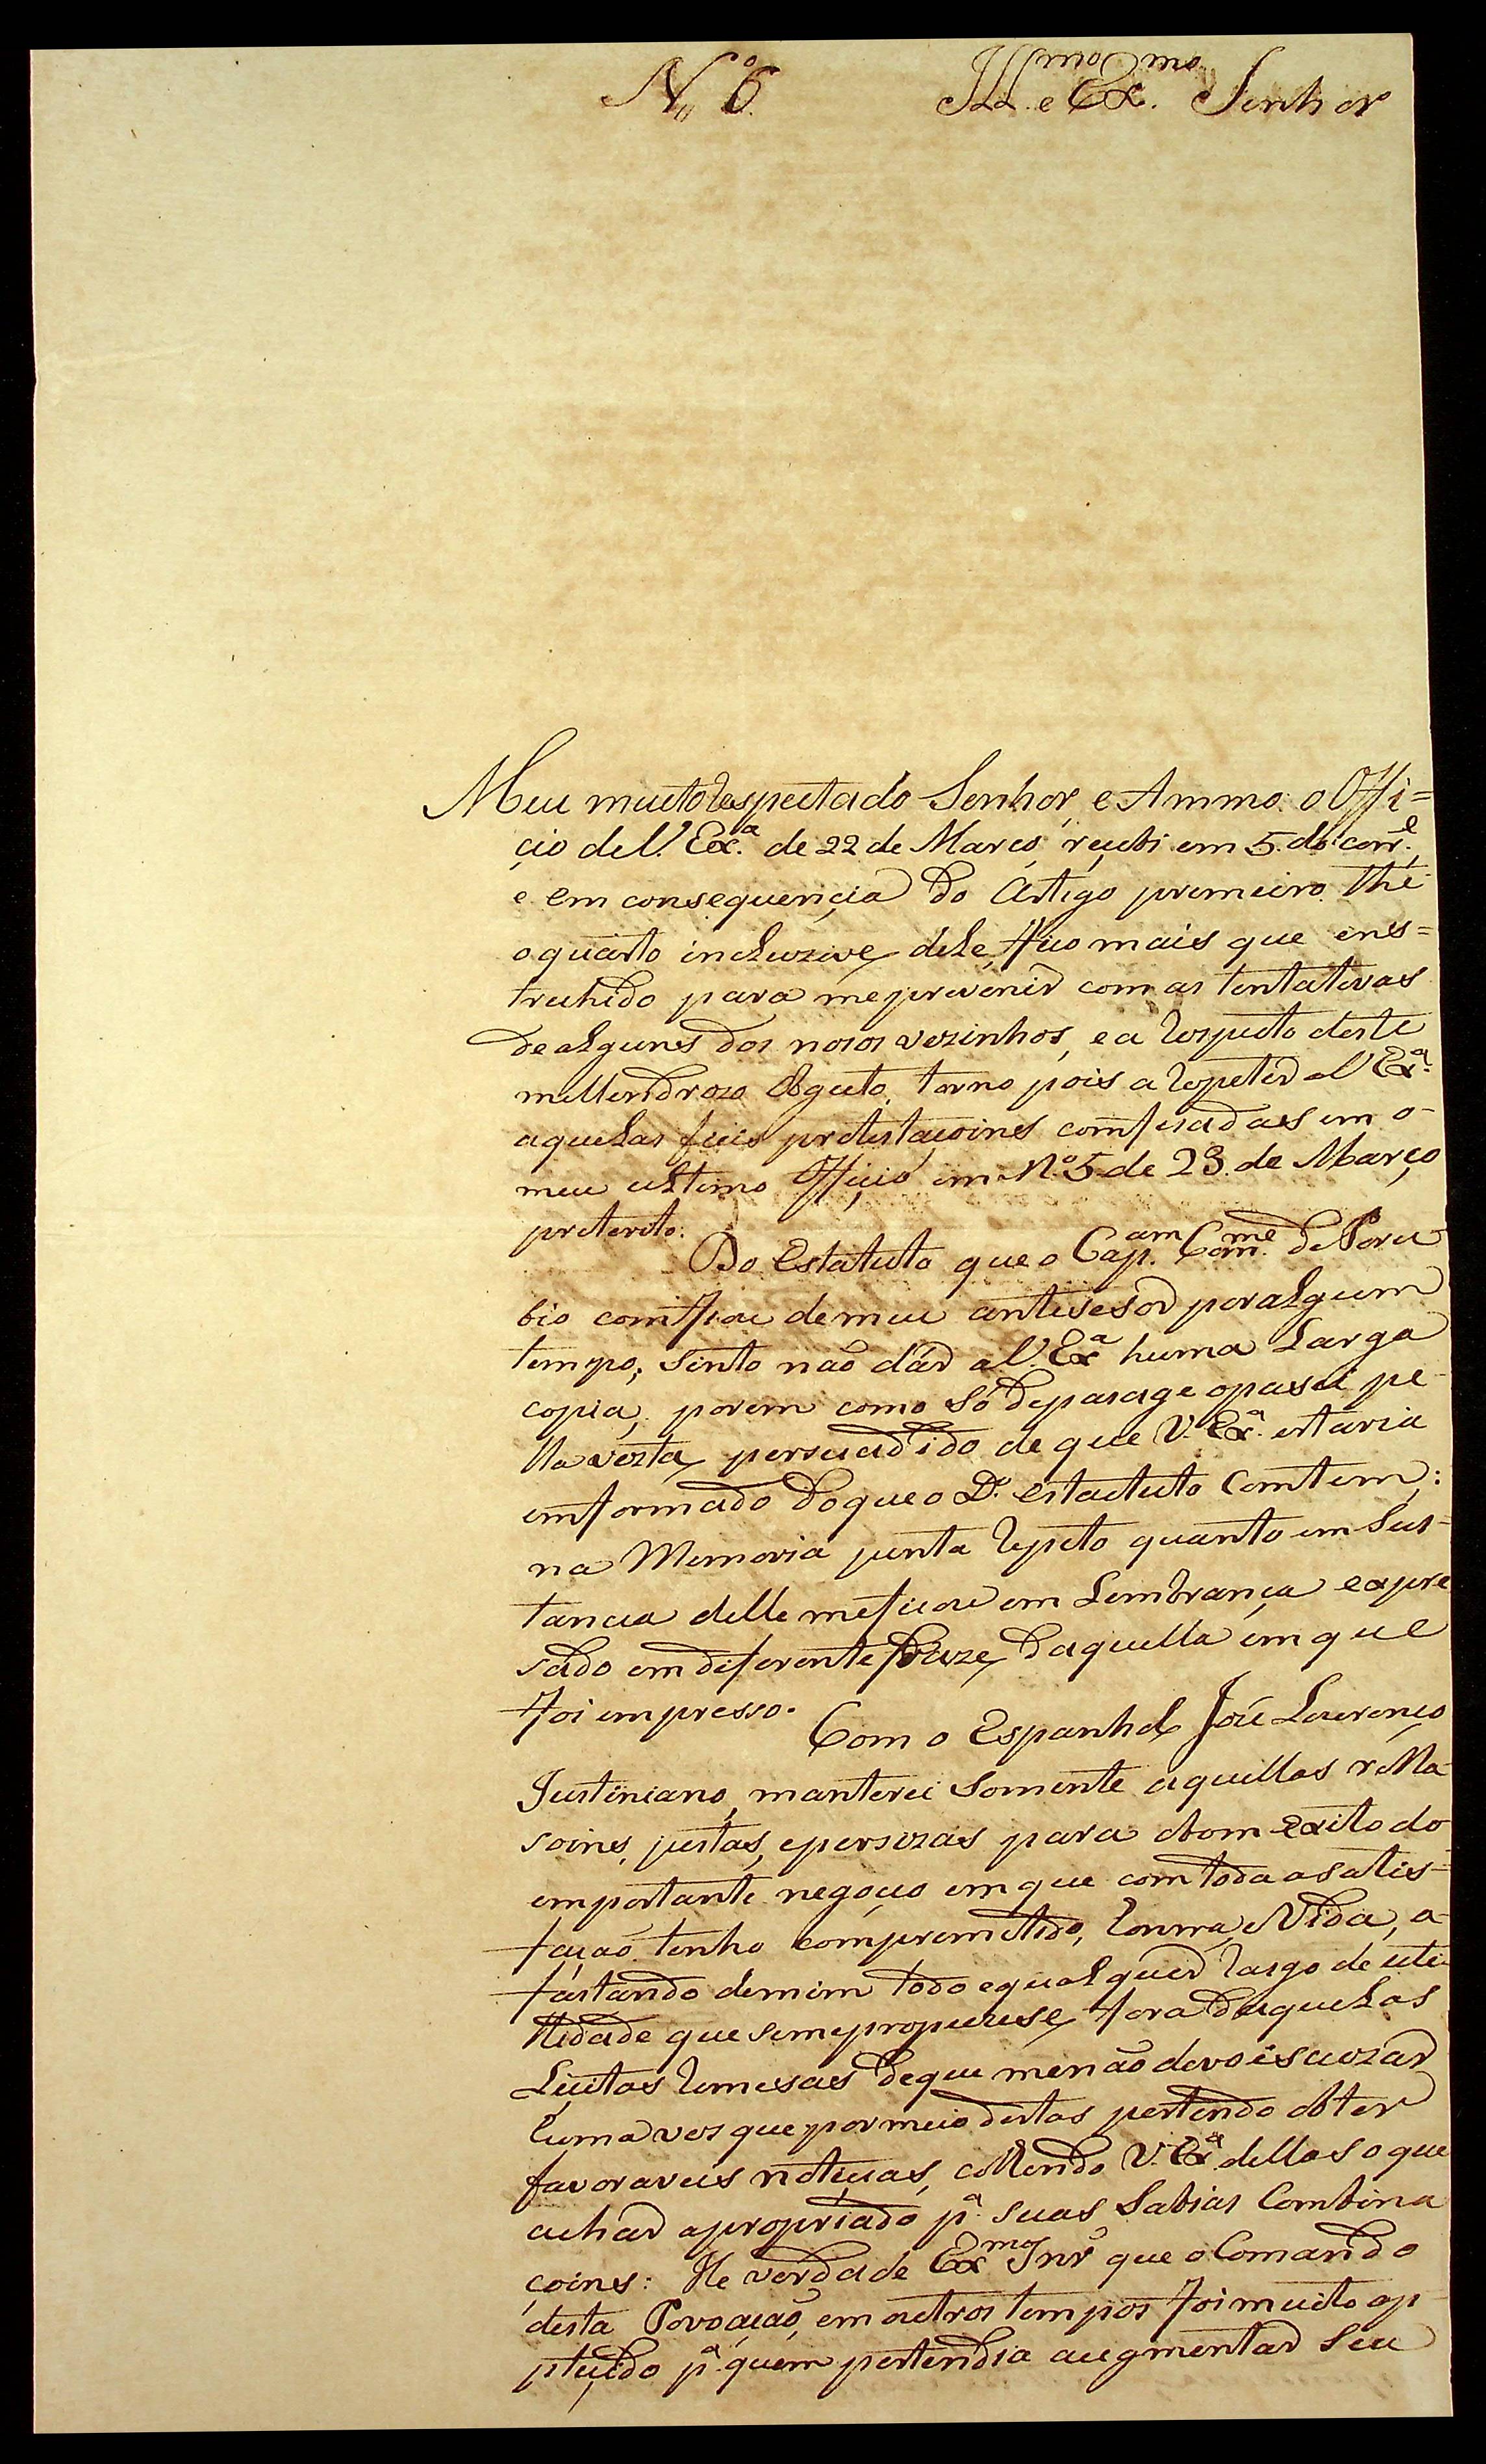 N.º 6. Ill.mo e Ex.mo Senhor
Meu muito Respeitado Senhor, e Ammo: o Offi=
çio de V. Ex.ª de 22 de Março reçebi em 5. do corr.e,
e em consequençia do Artigo premeiro thé
o quarto incluzive, dele fico mais que ens=
truhido para me prevenir com as tentativas
de alguns dos nosos vezinhos, e a Respeito deste
mellendrozo Obgeto, torno pois a Repeter a V. Ex.ª
aquelas fieis protestaçoines comfiadas em o
meu ultimo Offiçio em N.º 5. de 23. de Março
preterito.
Do Estatuto que o Cap.am Com.me de Poru
bio comfiou de meu antesesor por algum
tempo; sinto não dár a V. Ex.ª huma Larga
copia, porem como só de pasage o pasei pe
lla vista, persuadido de que V. Ex.ª estaria
imformado do que o D.º estatuto Comtem;:
na Memoria junta Repeto quanto em Sus=
tancia delle me ficou em Lembrança expre
sado em diferente fraze, daquella em que
foi impresso.
Com o Espanhol José Lourenço
Justiniano, manterei Somente aquellas rella
soines, justas, e persizas para o bom exito do
emportante negoçio em que com toda a satis=
façaõ tenho comprometido, Honra, e Vida, a
fastando de mim todo e qualquer Rasgo de uti
llidade que se me propuzese, fora daquelas
Liçitas Remesas de que me não devo escuzar
huma ves que por meio destas pertendo obter
favoraveis notiçias, collendo V. Ex.ª dellas o que
achar apropriado p.ª suas Sabias Combina
çoines: He verdade Ex.mo Snr' que o Comando
desta Povoaçaõ, em outros tempos foi muito ap
pteçido p.ª quem pertendia augmentar Seu